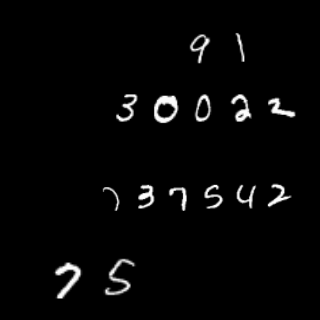 91
30022
737542
75